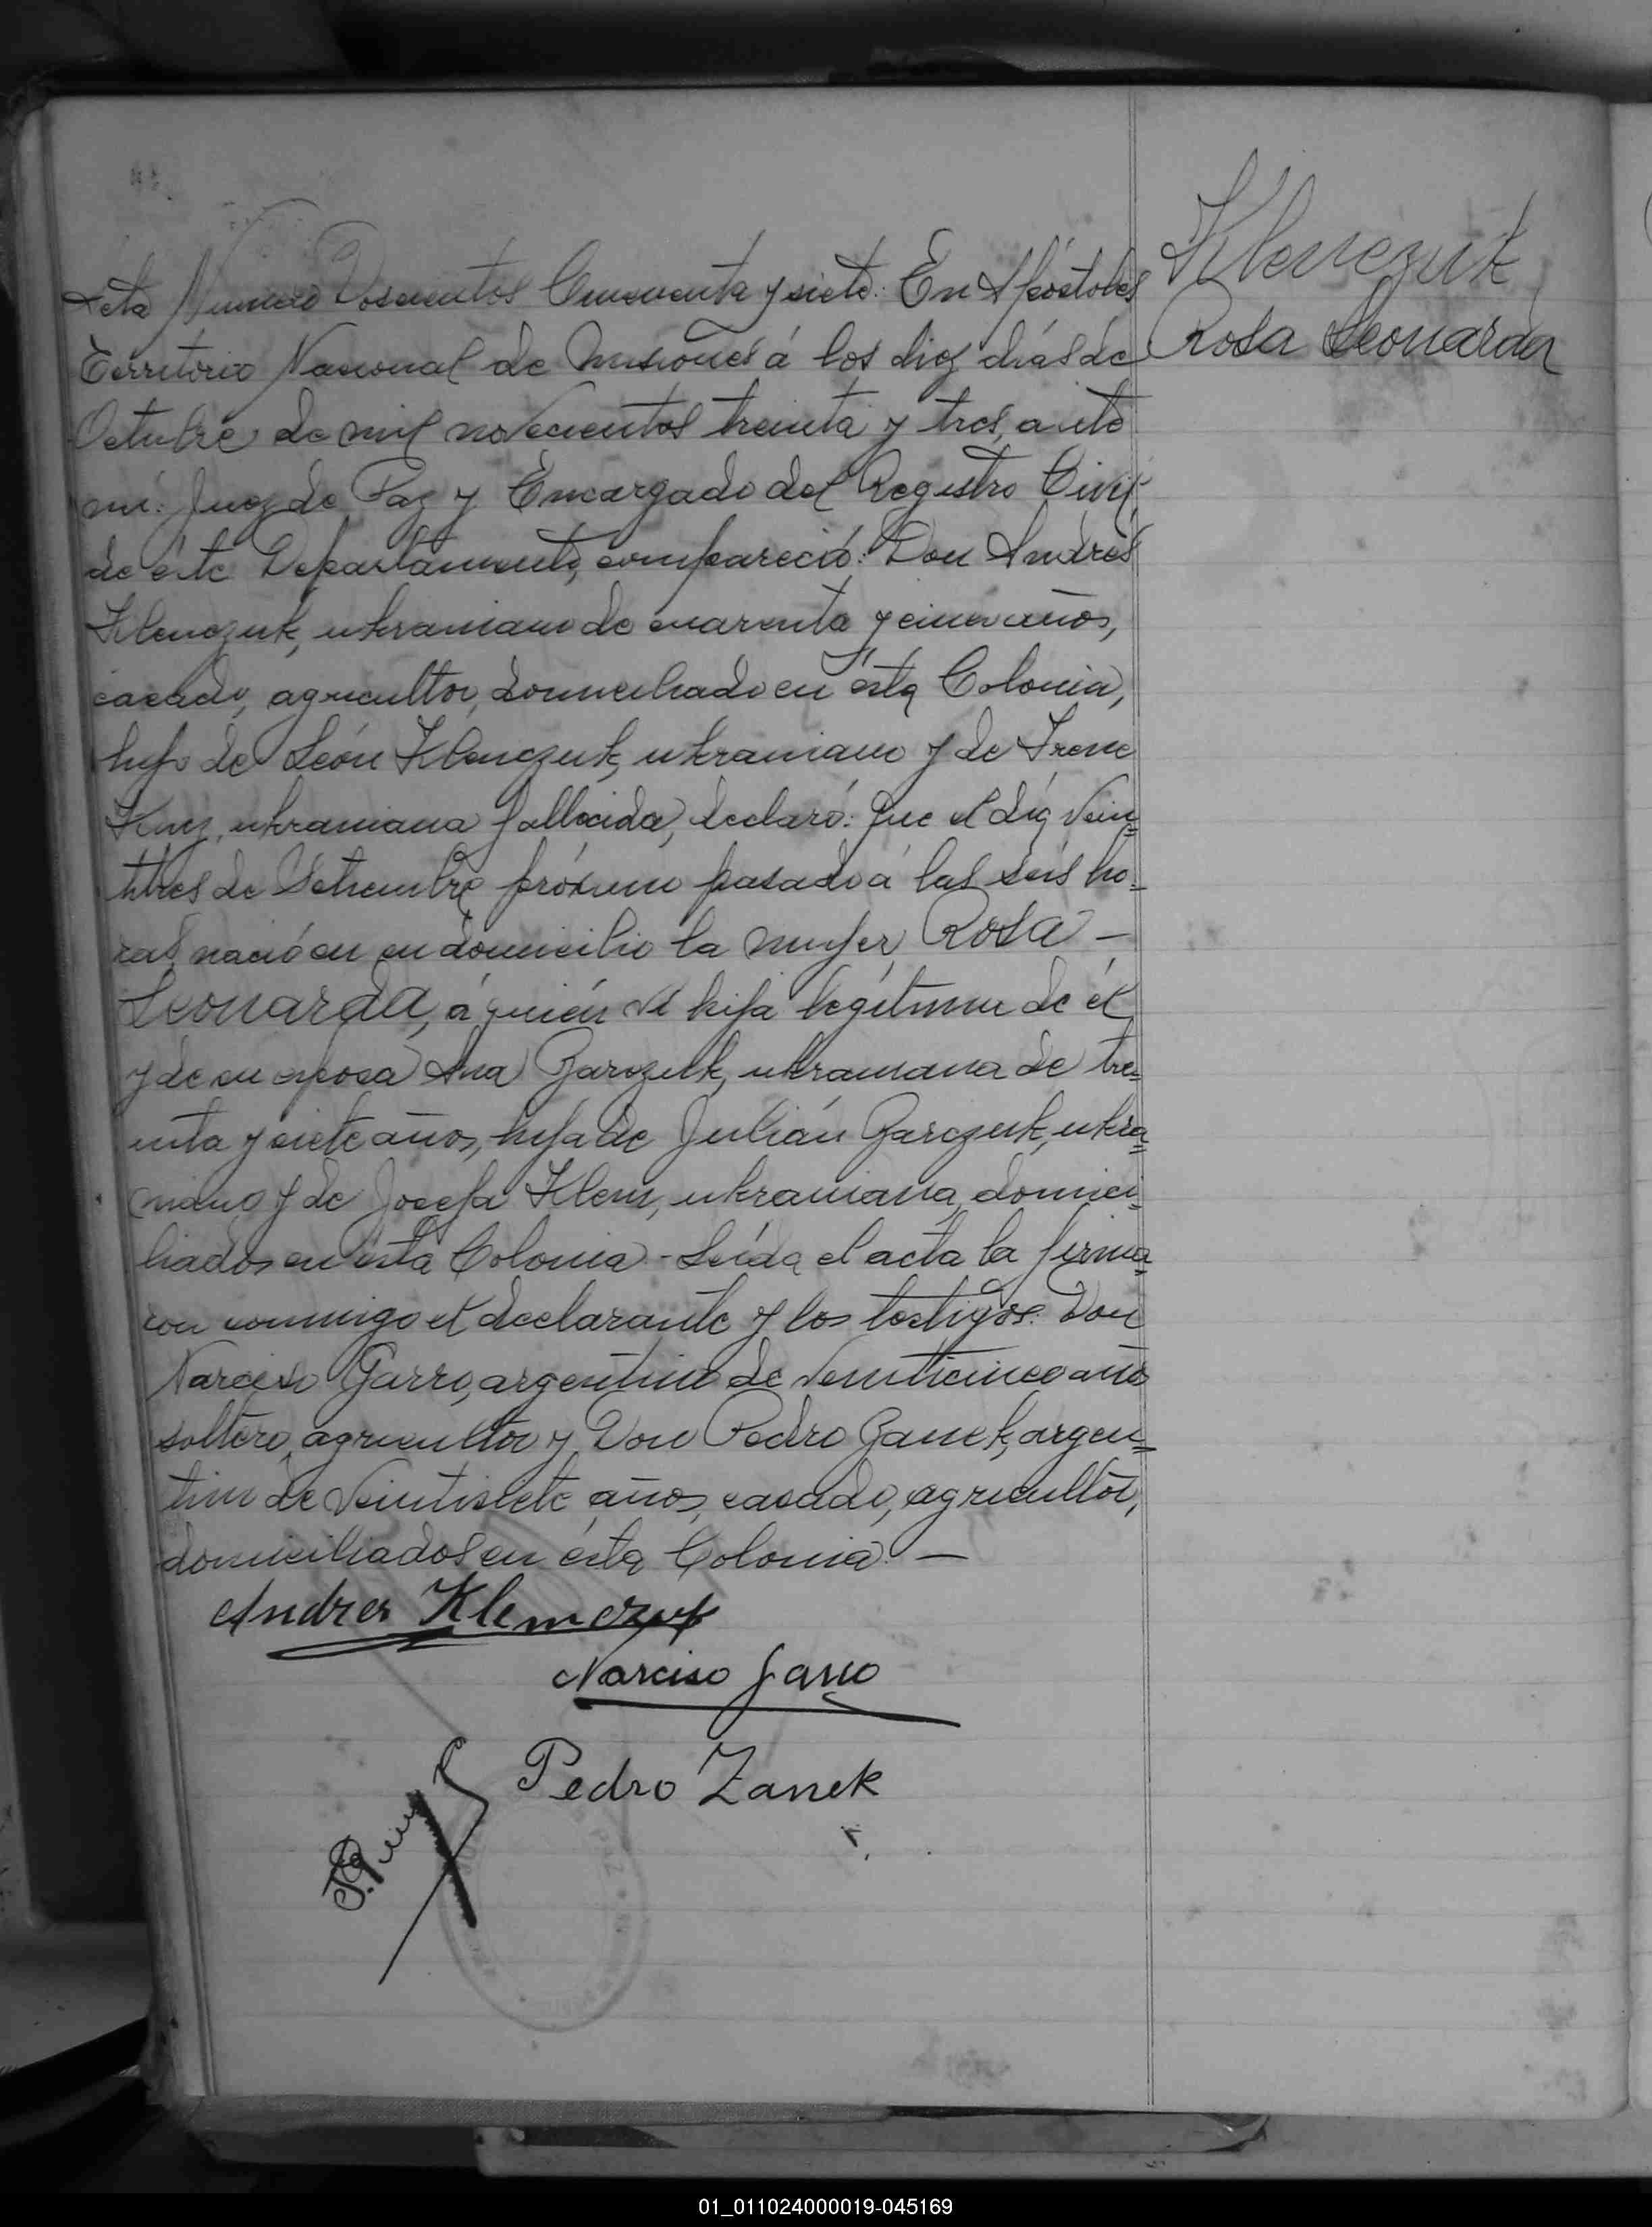 Klenczuk
Rosa Leonarda
Acta Número Doscientos Cincuenta y siete: En Apóstoles
Territorio Nacional de Misiones á los diez días de
Octubre de mil novecientos treinta y tres, ante
mí: Juez de Paz y Encargado del Registro Civil
de éste Departamento, compareció: Don Andrés
Klenczuk, ukraniano de cuarenta y cinco años,
casado, agricultor, domiciliado en ésta Colonia,
hijo de León Klenczuk, ukraniano y de Irene
ukraniana fallecida, declaró: Que el día Vein=
titres de Setiembre próximo pasado á las seis ho=
ras nació en su domicilio la mujer, Rosa —
Leonarda, á quién hija legítima de él
y de su esposa Ana Zarczuk, ukraniana de tre=
inta y siete años, hija de Julián Zarczuk, ukra=
niano y de Josefa Klem, ukraniana, domici=
liados en ésta Colonia - Leída el acta la firma=
ron conmigo el declarante y los testigos: Don
Narciso Garro, argentino de Veinticinco años
soltero, agricultor y Don Pedro Zanek, argen=
tino de Veintisiete años, casado, agricultor,
domiciliados en ésta Colonia. —
Andres Klemczuk
Narciso Garro
Pedro Zanek
PAZ
01_011024000019-045169